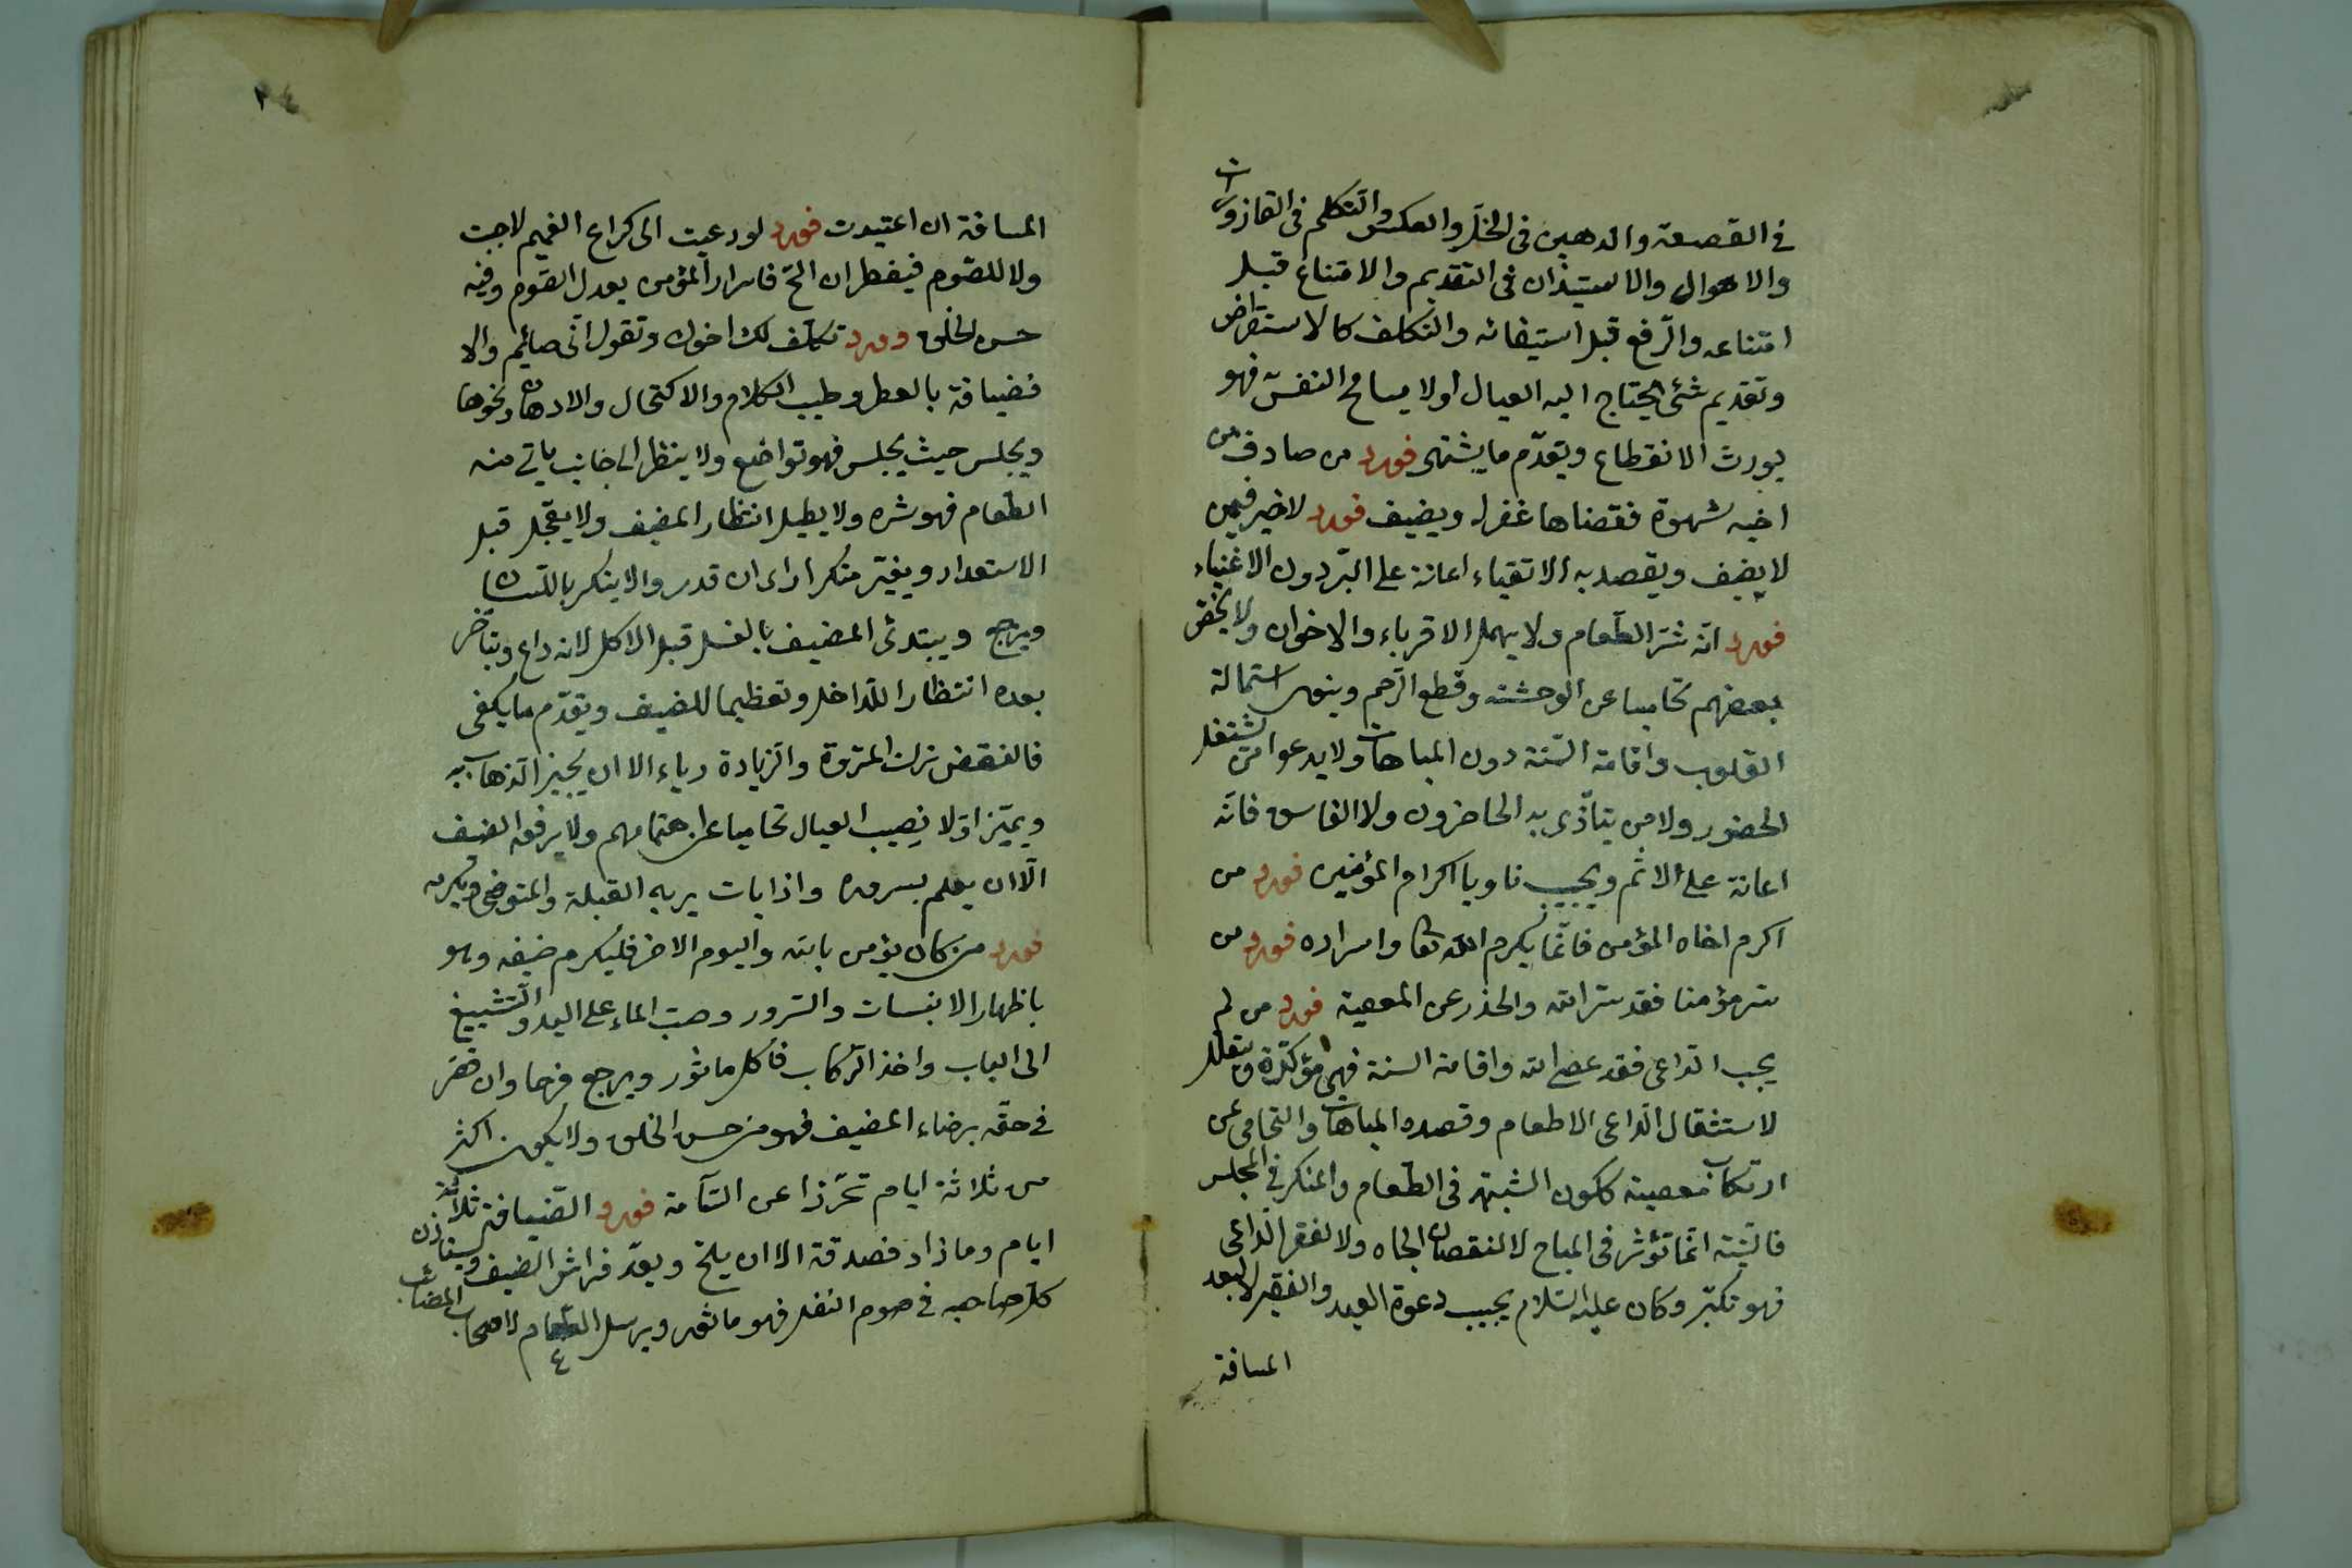 في القصعة والدهين في الخل والعكس والتكلم في القاذورات
والاهوال والاستيذان في التقديم والامتناع قبل
امتناعه والرفع قبل استيفائه والتكلف كالاستقراض
وتقديم شئ يحتاج اليه العيال اولا يسامح النفس فهو
يورث الانقطاع ويقدّم ما يشتهى فورد من صادف من
اخيه شهوة فقضاها غفر له ويضيف فورد لا خير فيمن
لا يضيف ويقصد به الاتقياء اعانة على البرّ دون الاغنياء
فورد انّه شرّ الطعام ولا يهمل الاقرباء والاخوان ولا يخص
بعضهم تحاميا عن الوحشة وقطع الرّحم وينوى استمالة
القلوب واقامة السّنة دون المباهات ولا يدعوا من يشتغل
الحضور ولا من يتأذّى به الحاضرون ولا الفاسق فانّه
اعانة على الاثم ويجيب ناويا اكرام المؤمنين فورد من
اكرم اخاه المؤمن فانّما يكرم الله تعا واسراره فورد من
ستر مؤمنا فقد ستر الله والحذر عن المعصية فورد من لم
يجب الدّاعى فقد عصى الله واقامة السنة فهى مؤكدّة ويتعلل
لاستثقال الدّاعى الاطعام وقصده المباهات والتحامى عن
ارتكاب معصية ككون الشبهة في الطعام والمنكر في المجلس
فالنيّة انّما تؤثر في المباح لا لنقصان الجاه ولا لفقر الدّاعى
فهو تكبّر وكان عليه السّلام يجيب دعوة العبد والفقير لا لبعد
المسافة
٢٤
المسافة ان اعتيدت فورد لو دعيت الى كراع الغميم لاجبت
ولا للصّوم فيفطر ان الحّ فاسرار المؤمن يعدل الصّوم وفيه
حسن الخلق وورد تكلّف لك اخوك وتقول انّى صائم والا
فضيافة بالعطر وطيب الكلام والاكتحال والادهان ونحوها
ويجلس حيث يجلس فهو تواضع ولا ينظر الى جانب ياتى منه
الطعام فهو شره ولا يطيل انتظار المضيف ولا يعجّل قبل
الاستعداد ويغيّر منكرا راى ان قدر والا ينكر باللسان
ويرجع ويبتدئ المضيف بالغسل قبل الاكل لانه داع ويتأخر
بعده انتظارا للدّاخل وتعظيما للضيف ويقدّم ما يكفى
فالنقص ترك المروّة والزيادة رياء الا ان يجيز الذهاب به
ويميّز اوّلا نصيب العيال تحاميا عن اهتمامهم ولا يرفع الضيف
الّا ان يعلم بسروره واذا بات يريه القبلة والمتوضئ ويكرمه
فورد من كان يؤمن بالله واليوم الاخر فليكرم ضيفه وهو
باظهار الانبساط والسّرور وصبّ الماء على اليد والتشييع
الى الباب واخذ الرّكاب فالكل ماثور ويرجع فرحا وان قصّر
في حقّه برضاء المضيف فهو من حسن الخلق ولا يكون اكثر
من ثلاثة ايام تحرّزا عن السّآمة فورد الضّيافة ثلاثة
ايام وما زاد فصدقة الا ان يلحّ ويعدّ فراش الضيف ويستأذن
كلّ صاحبه في صوم النفل فهو ماثور ويرسل الطعام لاصحاب المصائب
٤